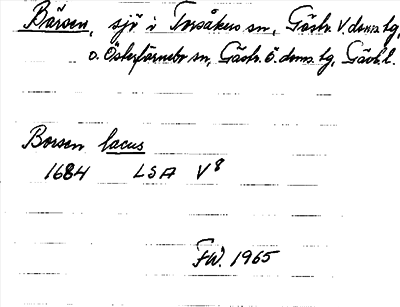 Bärsen, sjö i Torsåkers sn, Gästr. V. doms.tg,
o. Österfärnebo sn, Gästr. Ö. doms. tg, Gävl. l.
Borsen lacus
1684 LSA V8
FW. 1965